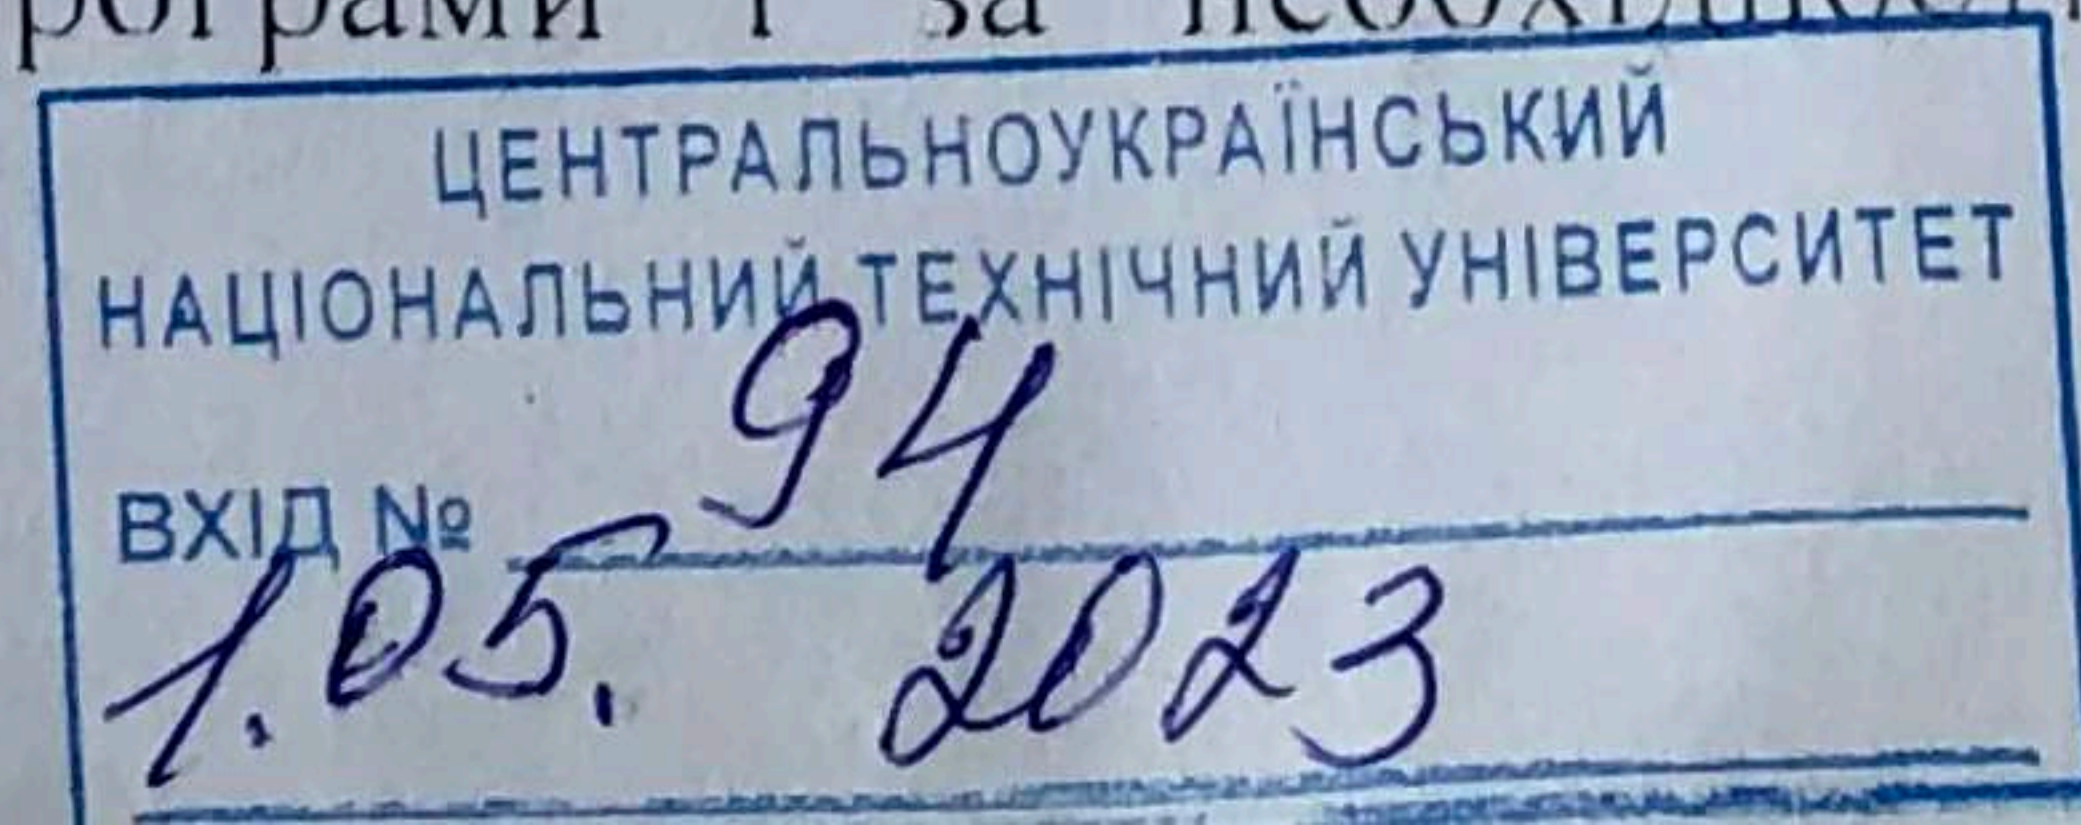 ЦЕНТРАЛЬНОУКРАЇНСЬКИЙ
НАЦІОНАЛЬНИЙ ТЕХНІЧНИЙ УНІВЕРСИТЕТ
94
ВХІД №
1.05. 2023